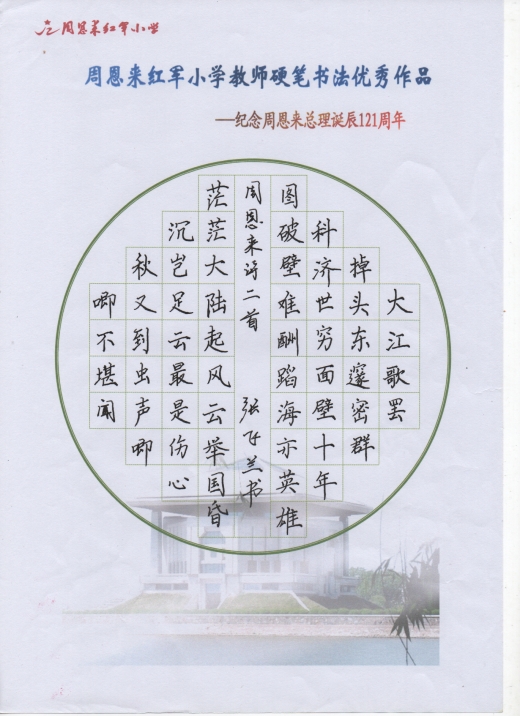 周恩来红军小学
周恩来红军小学教师硬笔书法优秀作品
—纪念周恩来总理诞辰121周年
大江歌罢
掉头东邃密群
科济世穷面壁十年
图破壁难酬蹈海亦英雄
周恩来诗二首 张飞兰书
茫茫大陆起风云举国昏
沉岂足云最是伤心
秋又到虫声唧
唧不堪闻